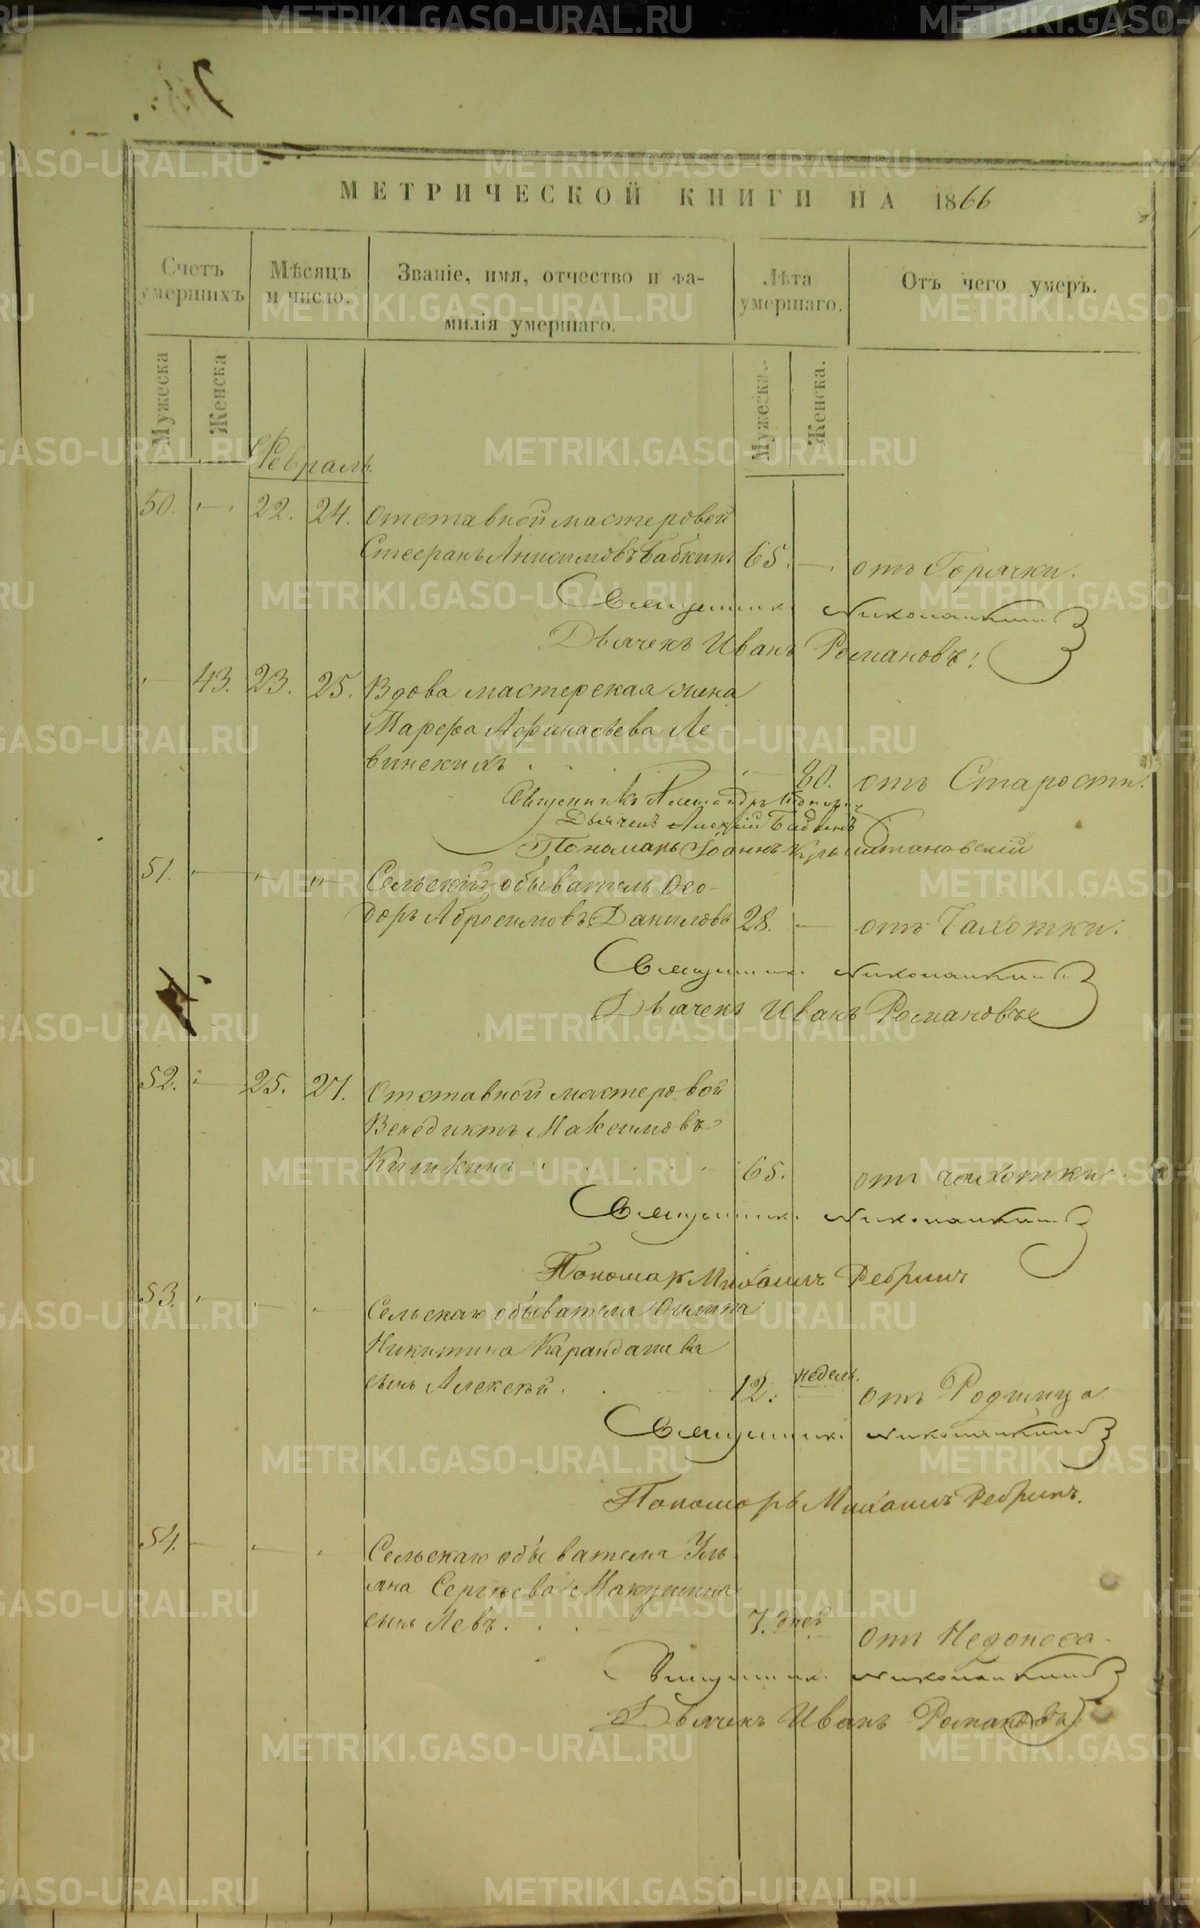 МЕТРИЧЕСКОЙ КНИГИ НА 1866
Счетъ умершихъ
Мѣсяцъ и число.
Званіе, имя, отчество и фа-
милія умершаго.
Лѣта умершаго.
Отъ чего умеръ.
Мужеска
Женска
Мужеска.
Женска.
Февраль
50. — 22. 24. Отставной мастеровой
Стефанъ Анисимовъ Бабкинъ 65. — отъ Горячки.
Священникъ
Дьячекъ Иванъ Романовъ
— 43. 23. 25. Вдова мастерская жена
Марфа Афанасьева Ле
винскихъ — 80. отъ Старости.
Священникъ Александръ
Дьячекъ Алексій
Пономарь Іоаннъ
51. — — „— Сельскій обыватель Ѳео-
доръ Абросимовъ Даниловъ 28. — отъ Чахотки.
Священникъ
Дьячекъ Иванъ Романовъ
52. — 25. 27. Отставной мастеровой
Венедиктъ Максимовъ
65. отъ чахотки
Священникъ
Пономарь Михаилъ Ребринъ
53. — — — Сельскаго обывателя
Никитина Карандашева
сынъ Алексѣй. 12. недель. отъ Родимца
Священникъ
Пономарь Михаилъ Ребринъ.
54. — — — Сельскаго обывателя Уль
яна Сергѣева Макушина
сынъ Левъ. 7. дней отъ Недоноса
Священникъ
Дьячекъ Иванъ Романовъ
METRIKI.GASO-URAL.RU